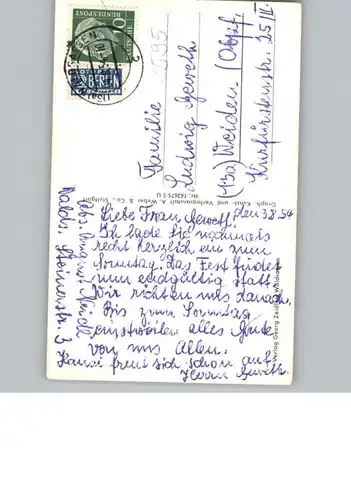 10
DEUTSCHE
BUNDESPOST
2 BERLIN
NOTOPFER
1695
Familie
Ludwig Geweth
(13a) Weiden / Obpf.
Kurfürstenstr. 25/II.
Graph. Kunst- und Verlagsanstalt A. Weber & Co., Stuttgart
Nr. 143675 S U
Verlag Georg Zeidler, Waldsassen
den 3.8.54
Liebe Frau Gewett!
Ich lade Sie nochmals
recht herzlich ein zum
Sonntag. Das Fest findet
nun endgültig statt.
Wir richten uns danach.
Bis zum Sonntag
einstweilen alles Gute
von uns Allen.
Hansi freut sich schon auf
Herrn Geweth.
Abs.
Walds. Steinerstr. 3